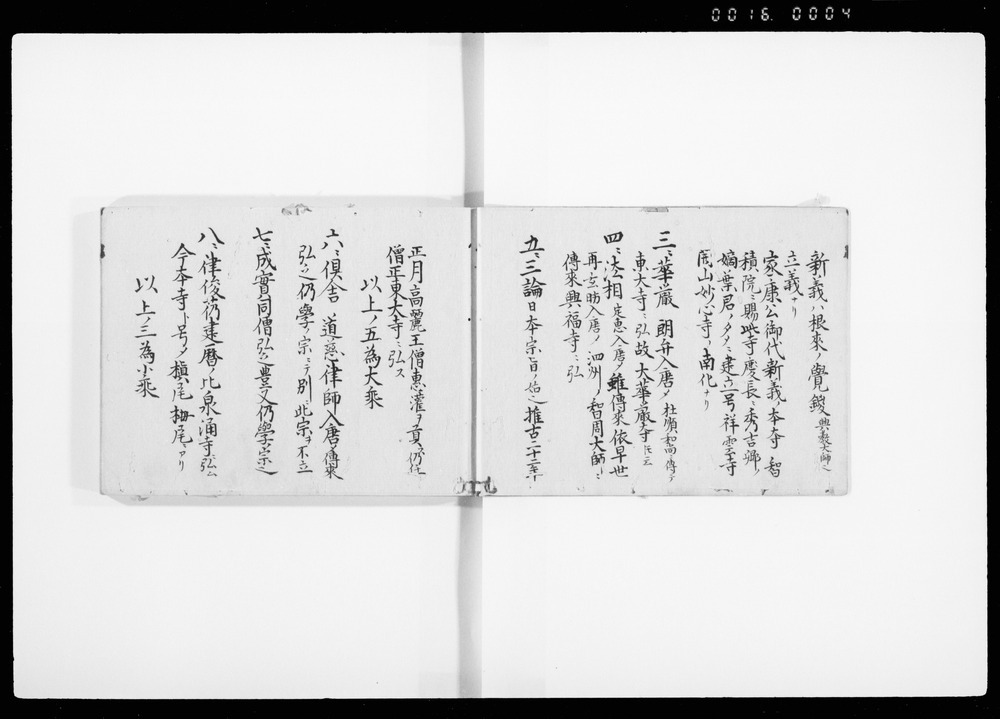 0016.0004
新義ハ根來ノ覺鑁 興教大師之
立義ナリ
家康公御代新義ノ本寺 智
積院ニ賜此寺慶長ニ秀吉卿ノ
嫡葉君ノタメニ建立号祥雲寺
開山妙心寺ノ南化ナリ
三ニ華嚴 朗弁入唐〆 杜順和尚ノ傳テ
東大寺ニ弘故ノ大華嚴寺ト云
四ニ法相 定恵入唐〆雖傳來依早世
再玄昉入唐〆泗洲ノ智周大師ニ
傳來興福寺ニ弘
五ニ三論 日本宗旨ノ始也推古三十三年
正月高麗王僧惠灌ヲ貢ス仍任
僧正東大寺ニ弘ス
以上ノ五為大乘
六ニ倶舎 道慈律師入唐傳來
弘之仍學ノ宗ニテ別ノ此宗ヲ不立
七ニ成實 同僧弘之豊又仍學宗之
八ニ律 俊芿建暦ノ比泉涌寺ニ弘ム
今本寺ト号〆槇尾 栂尾ニアリ
以上ノ三為小乘